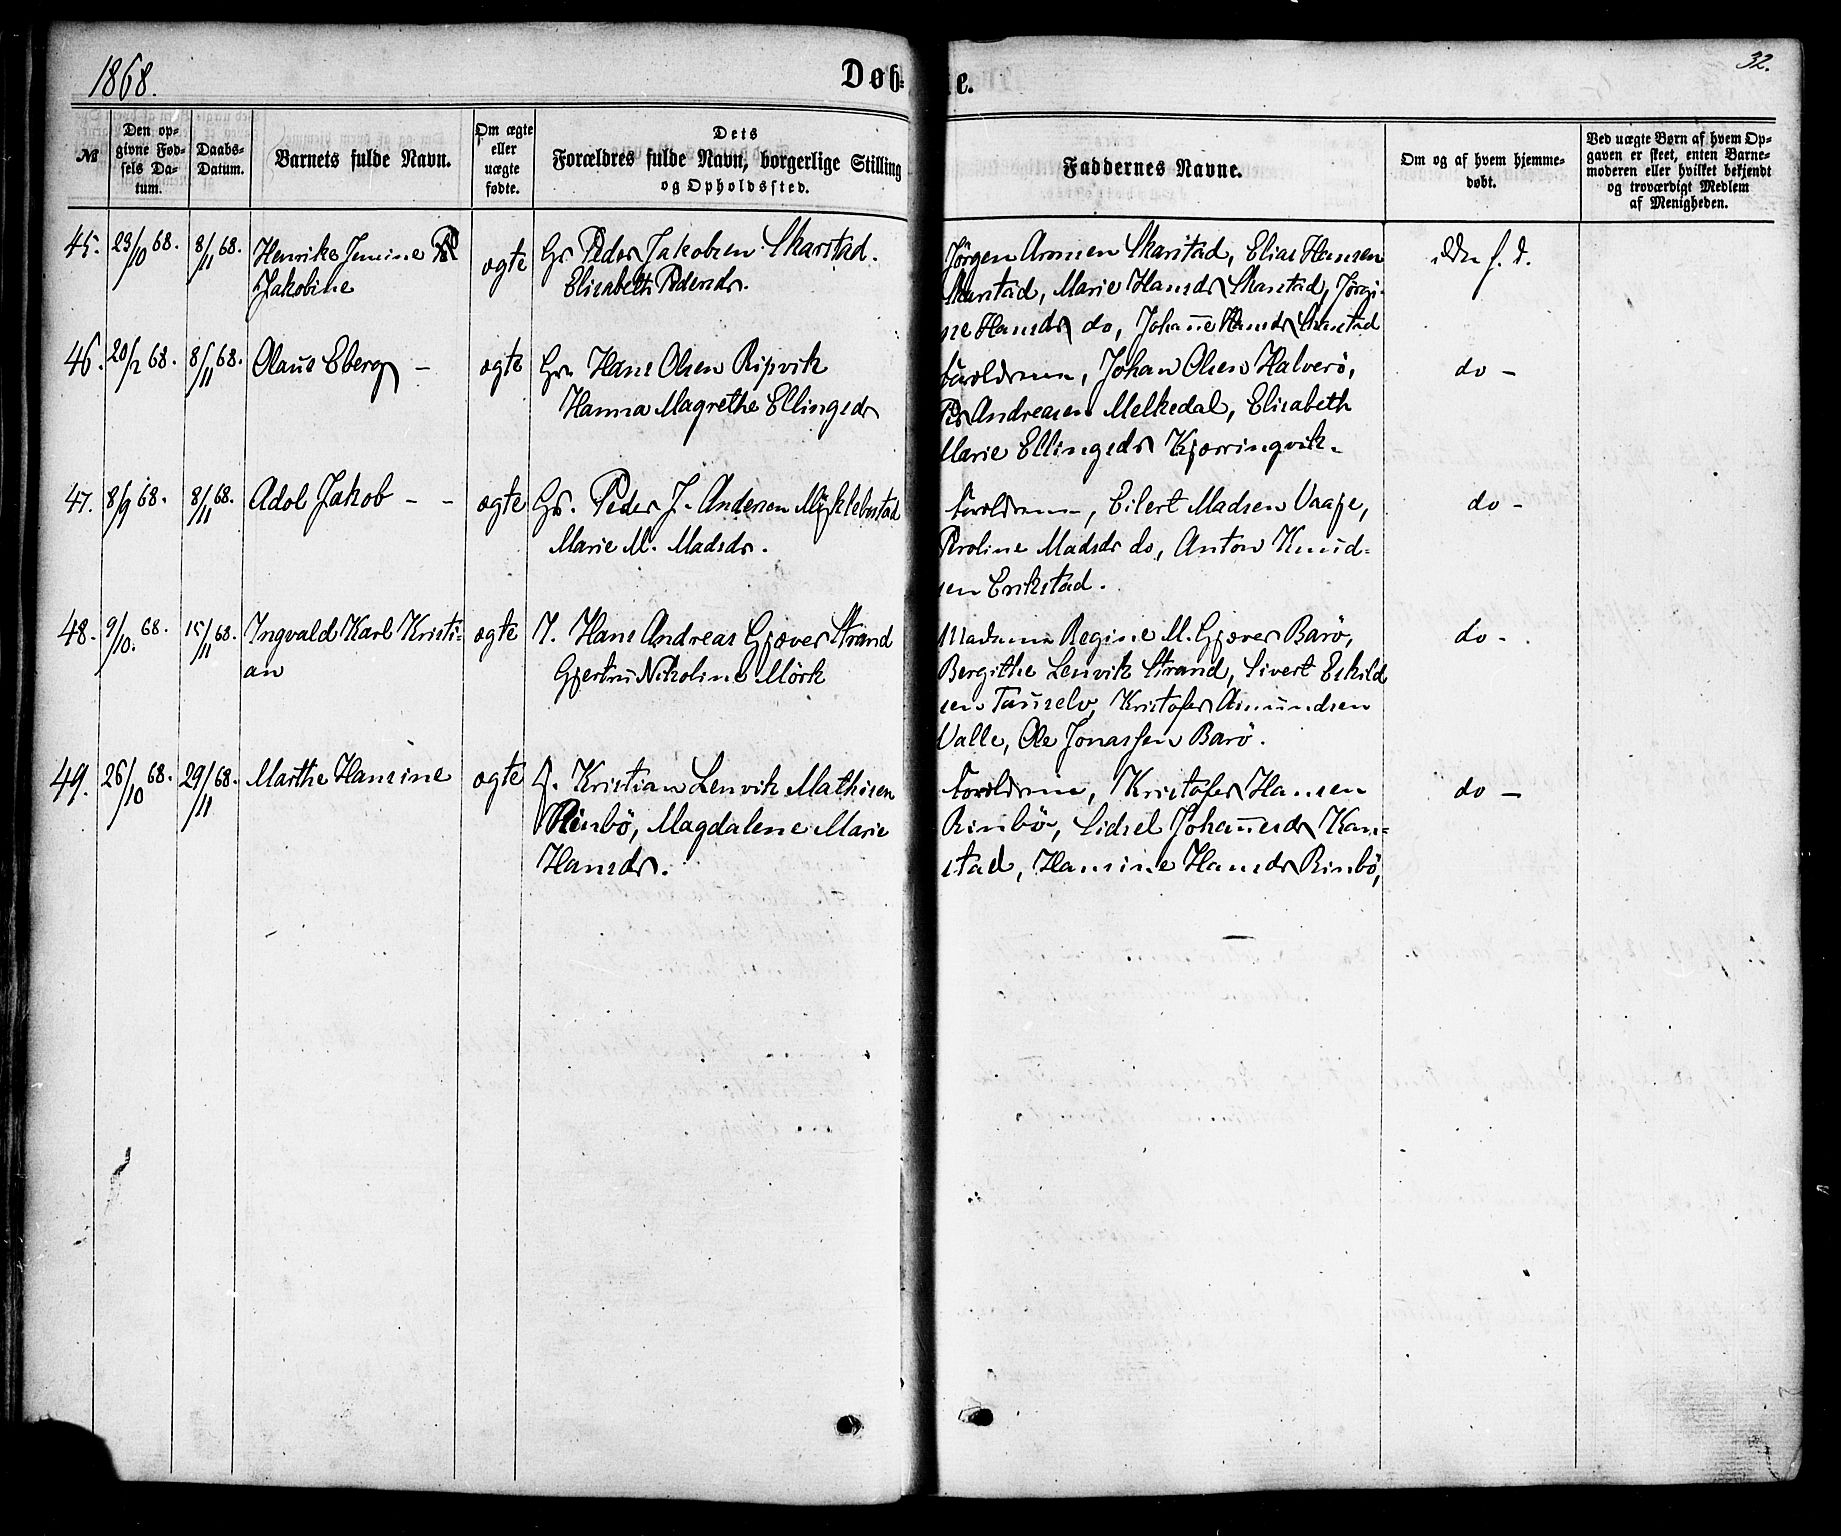 1868.
Døb-
te.
32.
№
Den op-
givne Fød-
sels Da-
tum.
Daabs-
Datum.
Barnets fulde Navn.
Om ægte
eller
uægte
fødte.
Dets
Forældres fulde Navn, borgerlige Stilling
og Opholdssted.
Faddernes Navne.
Om og af hvem hjemme-
døbt.
Ved uægte Børn af hvem Op-
gaven er skeet, enten Barne-
moderen eller hvilket bekjendt
og troværdigt Medlem
af Menigheden.
45. 23/10 68. 8/11 68. Henrike Jenine
Jakobine
ægte
Gr. Peder Jakobsen Skarstad.
Elisabeth Pedersdr.
Jörgen Aronsen Skarstad, Elias Hansen
Skarstad, Marie Hansdr Skarstad, Jörgi-
ne Hansdr do, Johanne Hansdr Skarstad
ikke h. d.
46. 20/2 68. 8/11 68. Olaus Eberg –
ægte
Gr. Hans Olsen Ripvik
Hanna Magrethe Ellingsdr
Forældrene, Johan Olsen Halverö,
Peder Andreasen Melkedal, Elisabeth
Marie Ellingsdr Kjærringvik.
do –
47. 8/9 68. 8/11 68. Adol Jakob – –
ægte
Gr. Peder J. Andersen Myklebostad
Marie M. Madsdr.
Forældrene, Eilert Madsen Vaage,
Peroline Madsdr do, Anton Knud-
sen Erikstad.
do –
48. 9/10. 68. 15/11 68. Ingvald Karl Kristi-
an
ægte
I. Hans Andreas Gjæver Strand
Gjertru Nikoline Mörk
Madame Regine M. Gjæver Barö,
Bergithe Lenvik Strand, Sivert Eskild
sen Taurelv, Kristofer Amundsen
Valle, Ole Jonassen Barö.
do –
49. 26/10 68. 29/11 68. Marthe Hansine
ægte
I. Kristian Lenvik Mathisen
Rinbö, Magdalene Marie
Hansdr.
Forældrene, Kristofer Hansen
Rinbö, Sidsel Johannesdr Kan-
stad, Hansine Hansdr Rinbö,
do –